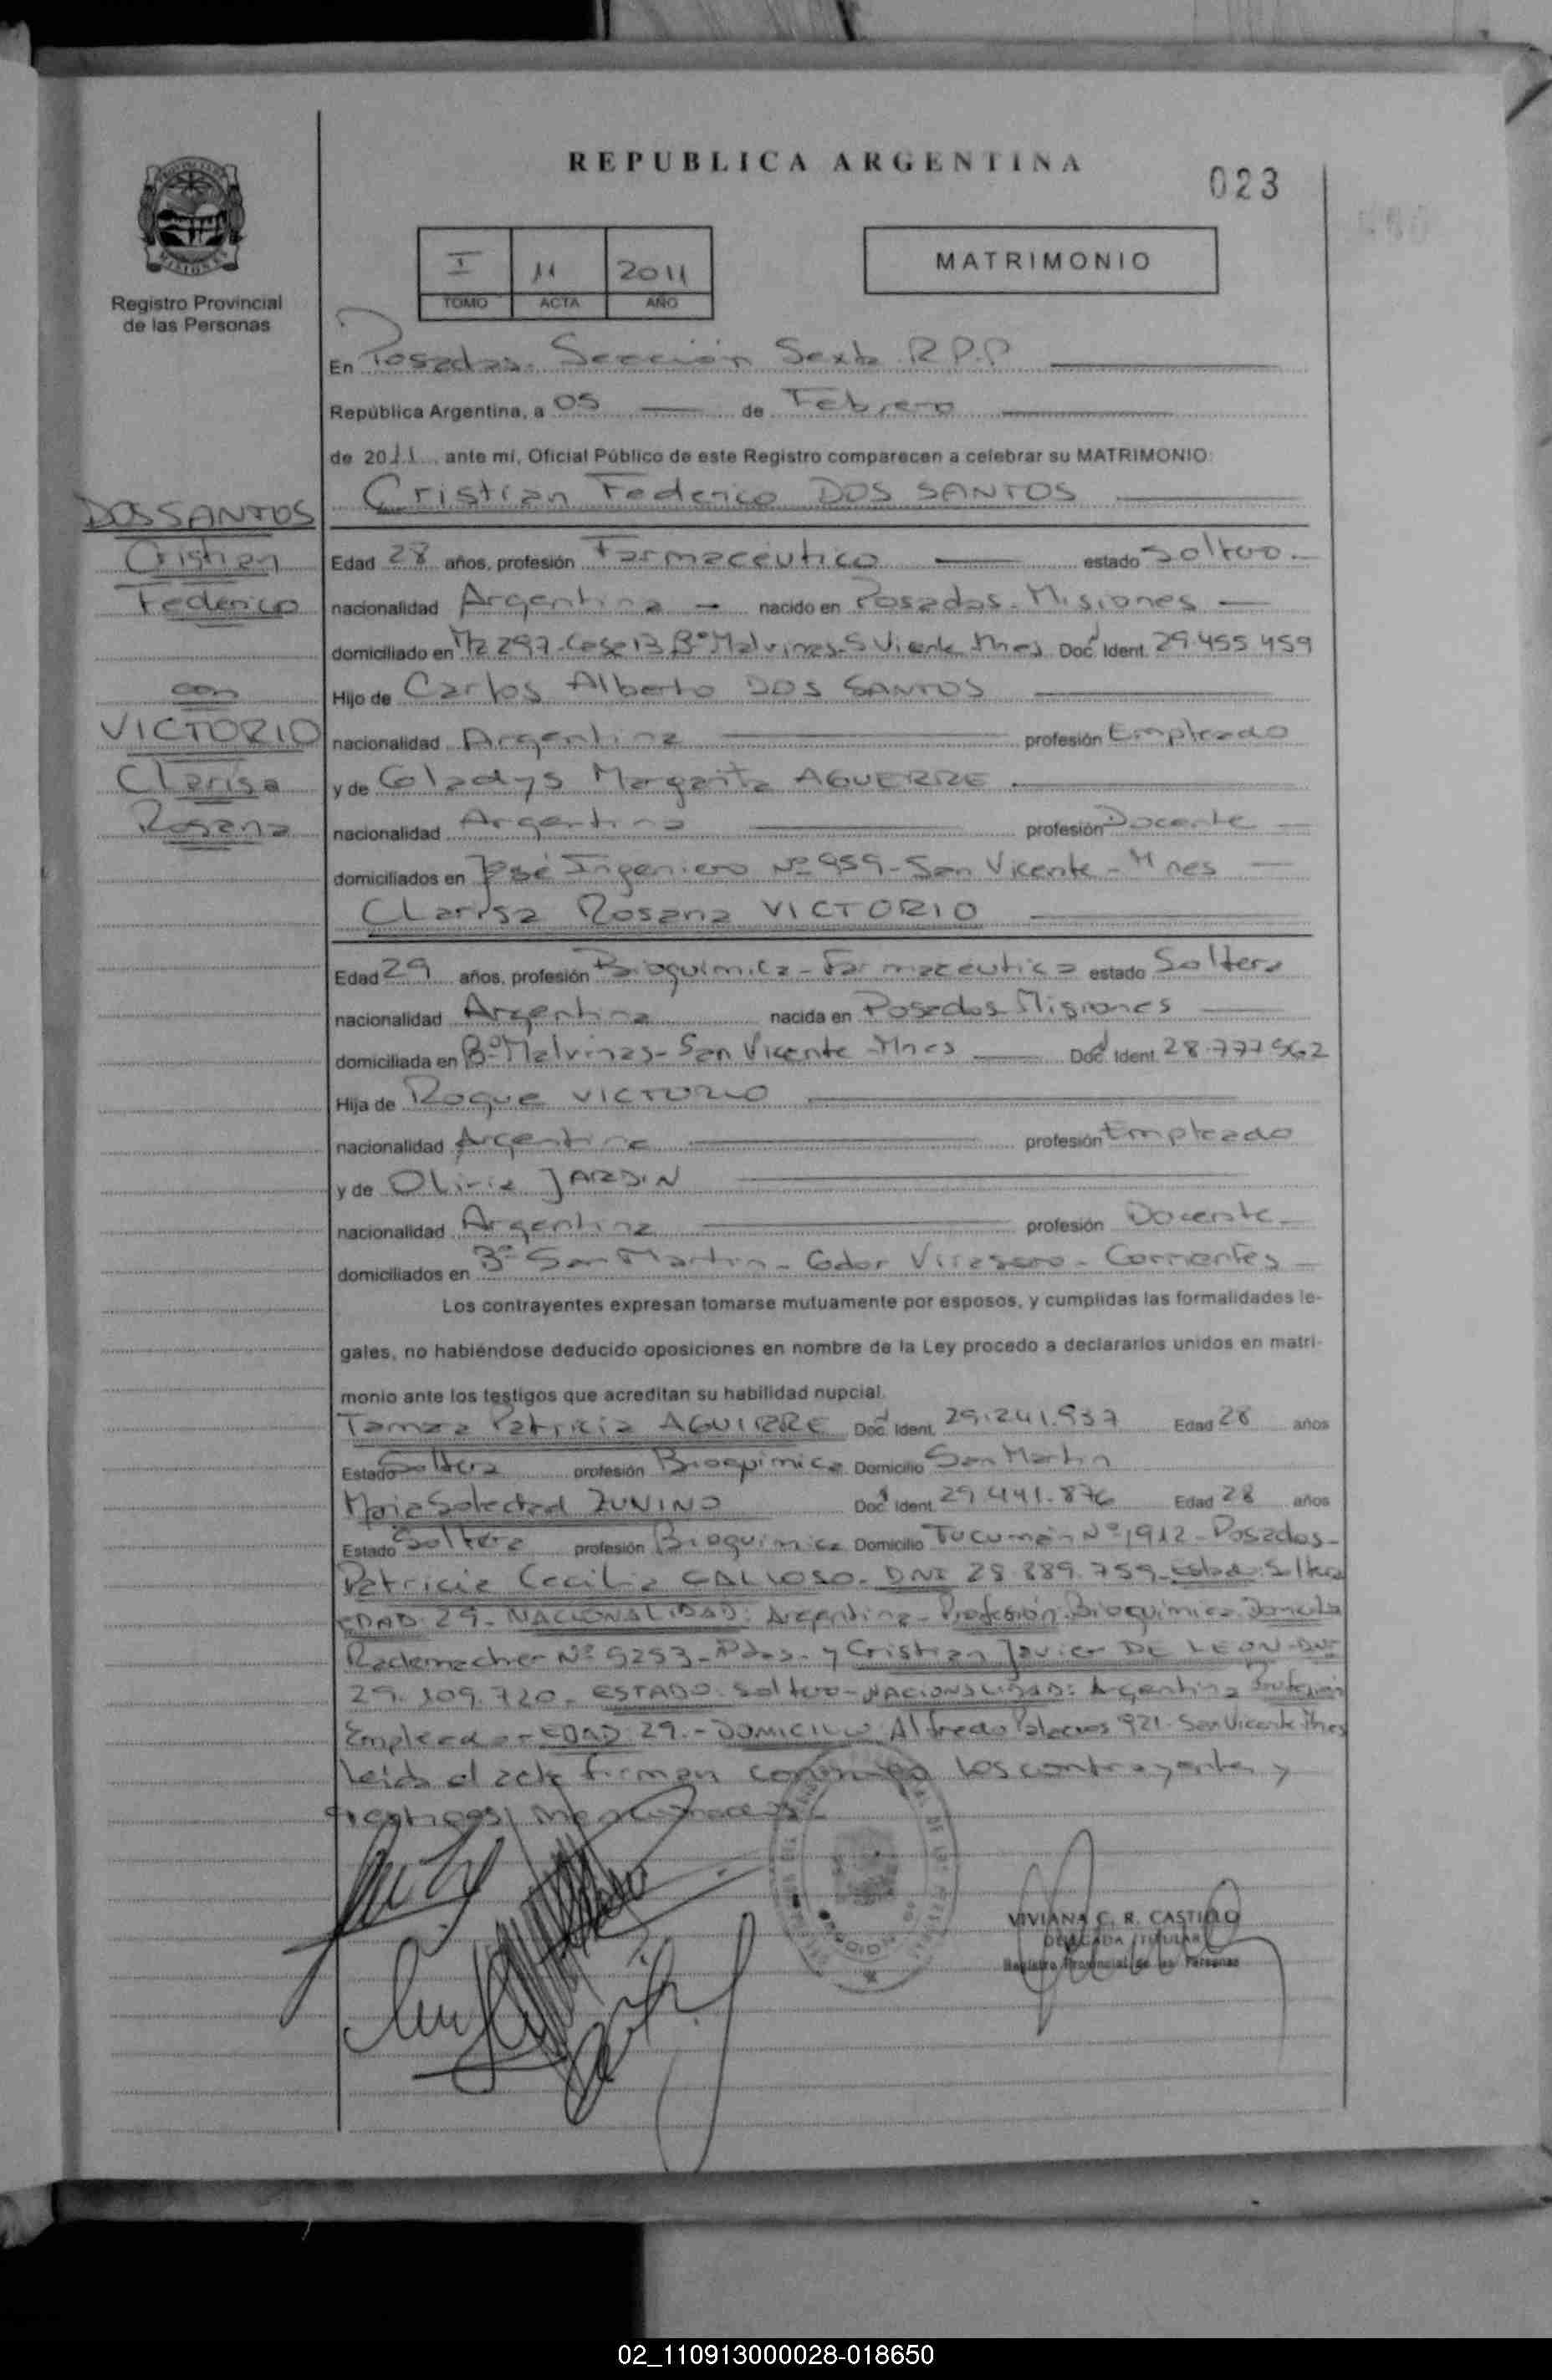 REPUBLICA ARGENTINA
023
Registro Provincial
de las Personas
I 11 2011
TOMO ACTA AÑO
MATRIMONIO
En Posadas. Sección Sexta R.P.P
República Argentina, a 05 de Febrero
de 2011 ante mí, Oficial Público de este Registro comparecen a celebrar su MATRIMONIO:
Cristian Federico DOS SANTOS
DOS SANTOS
Cristian
Federico
con
VICTORIO
Clarisa
Rosana
Edad 28 años, profesión Farmaceutico estado Soltero.
nacionalidad Argentina nacido en Posadas. Misiones
domiciliado en Mz 297. Casa 13 Bº Malvinas. S Vicente Mnes Doc. Ident. 29.455 459
Hijo de Carlos Alberto DOS SANTOS
nacionalidad Argentina profesión Empleado
y de Gladys Margarita AGUERRE
nacionalidad Argentina profesión Docente
domiciliados en José Ingeniero Nº 959 - San Vicente - Mnes
Clarisa Rosana VICTORIO
Edad 29 años, profesión Bioquimica - Farmaceutica estado Soltera
nacionalidad Argentina nacida en Posadas Misiones
domiciliada en Bº Malvinas - San Vicente - Mnes Doc. Ident. 28.777 562
Hija de Roque VICTORIO
nacionalidad Argentina profesión Empleado
y de Olivia JARDIN
nacionalidad Argentina profesión Docente
domiciliados en Bº San Martin - Gdor Virasoro - Corrientes
Los contrayentes expresan tomarse mutuamente por esposos, y cumplidas las formalidades le-
gales, no habiéndose deducido oposiciones en nombre de la Ley procedo a declararlos unidos en matri-
monio ante los testigos que acreditan su habilidad nupcial.
Tamara Patricia AGUIRRE Doc. Ident. 29.241.937 Edad 28 años
Estado Soltera profesión Bioquimica Domicilio San Martin
Maria Soledad ZUNINO Doc. Ident. 29.441.876 Edad 28 años
Estado Soltera profesión Bioquimica Domicilio Tucumán Nº 1912 - Posadas -
Patricia Cecilia GALLOSO. DNI 28.889.759 - Estado: Soltera
EDAD: 29 - NACIONALIDAD: Argentina - Profesión: Bioquimica
Rademacher Nº 5253 - Pdas - y Cristian Javier DE LEON. DNI
29.109.720 - ESTADO: Soltero - NACIONALIDAD: Argentina Profesión
Empleado - EDAD: 29. - DOMICILIO: Alfredo Palacios 921. San Vicente Mnes
Leida el acta firman conmigo los contrayentes y
testigos mencionados.
VIVIANA C. R. CASTILLO
DELEGADA TITULAR
Registro Provincial de las Personas
02_110913000028-018650